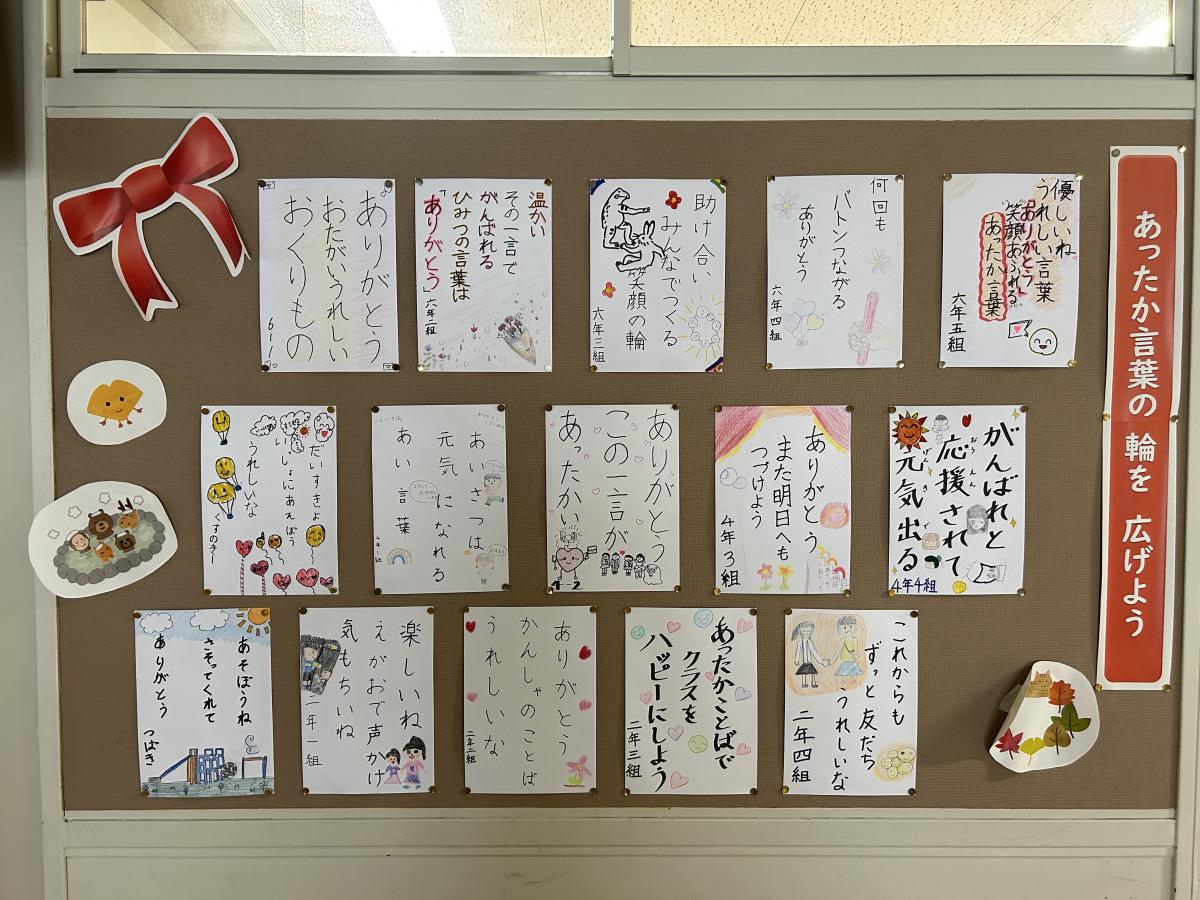 あったか言葉の輪を広げよう
ありがとう
おたがいうれしい
おくりもの
6-1
温かい
その一言で
がんばれる
ひみつの言葉は
「ありがとう」
六年二組
助け合い
みんなでつくる
笑顔の輪
六年三組
何回も
バトンつながる
ありがとう
六年四組
優しいね
うれしい言葉
「ありがとう」
笑顔あふれる
あったか言葉
六年五組
だいすきよ
いっしょにあそぼう
うれしいな
くすのき
あいさつは
元気になれる
あい言葉
ありがとう
この一言が
あったかい
4-2
ありがとう
また明日へも
つづけよう
4年3組
がんばれと
応援されて
おうえん
元気出る
げんきで
4年4組
あそぼうね
さそってくれて
ありがとう
つばき
楽しいね
えがおで声かけ
気もちいね
二年一組
ありがとう
かんしゃのことば
うれしいな
二年二組
あったかことばで
クラスを
ハッピーにしよう
二年三組
これからも
ずっと友だち
うれしいな
二年四組